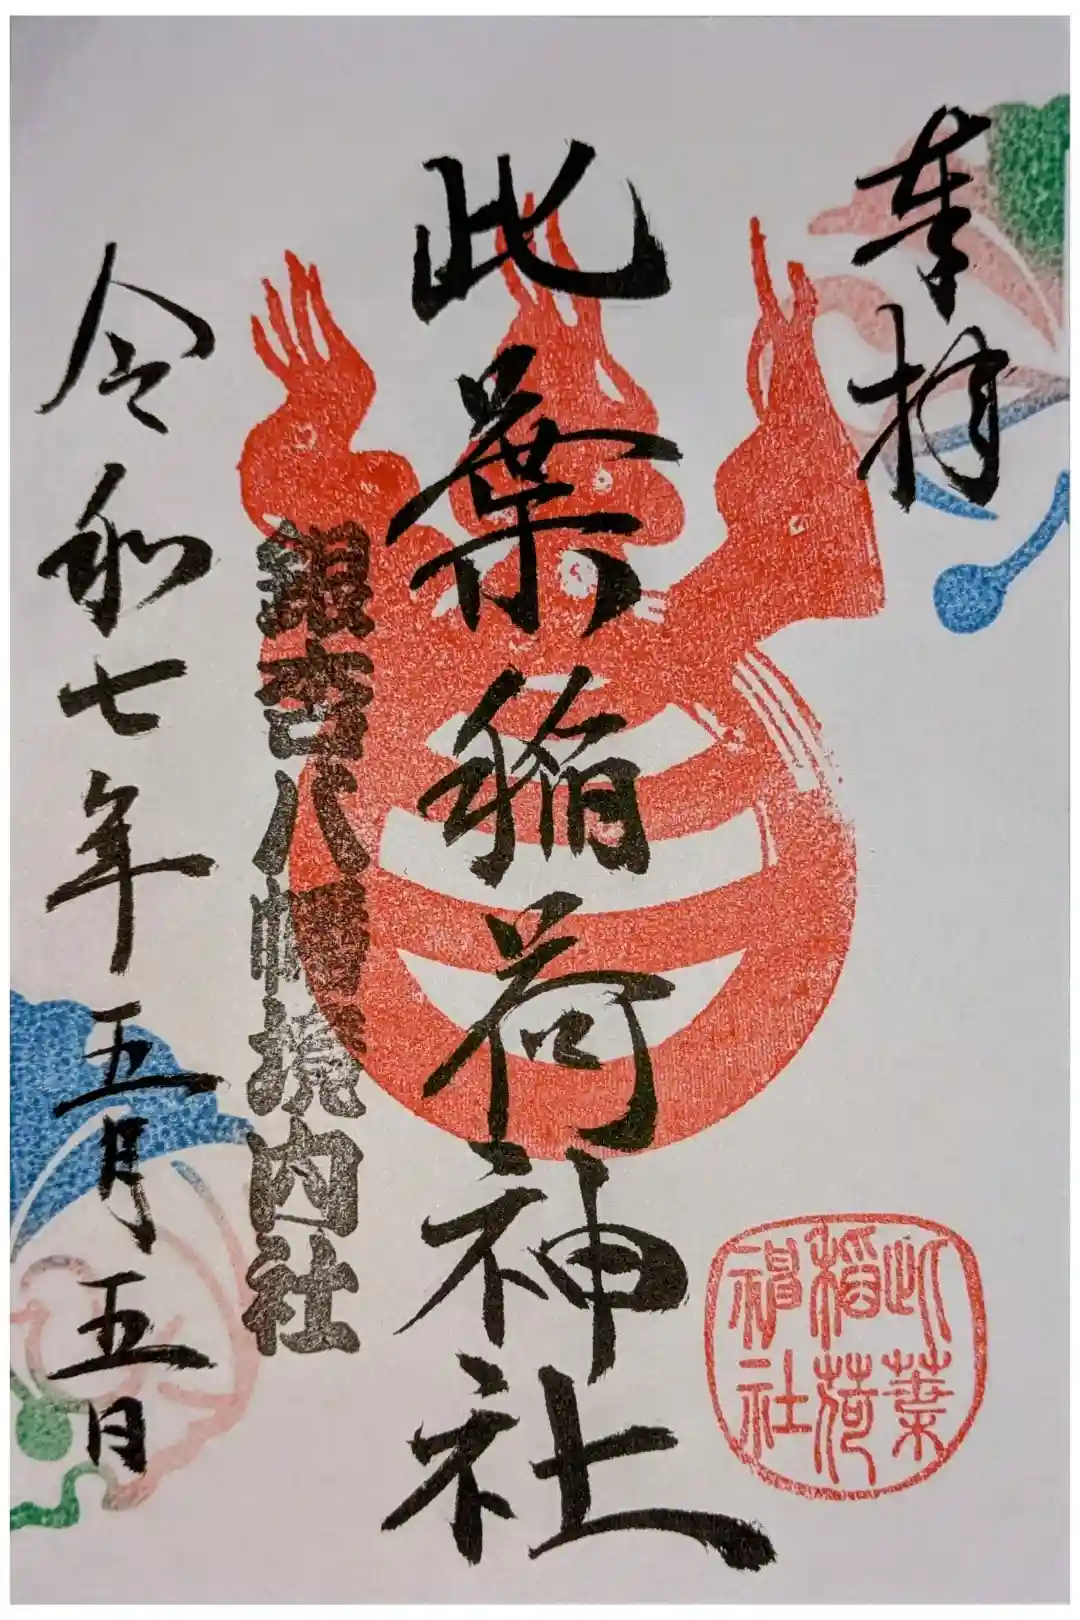 奉拝
此葉稲荷神社
此葉
稲荷
神社
銀杏八幡境内社
令和七年五月五日